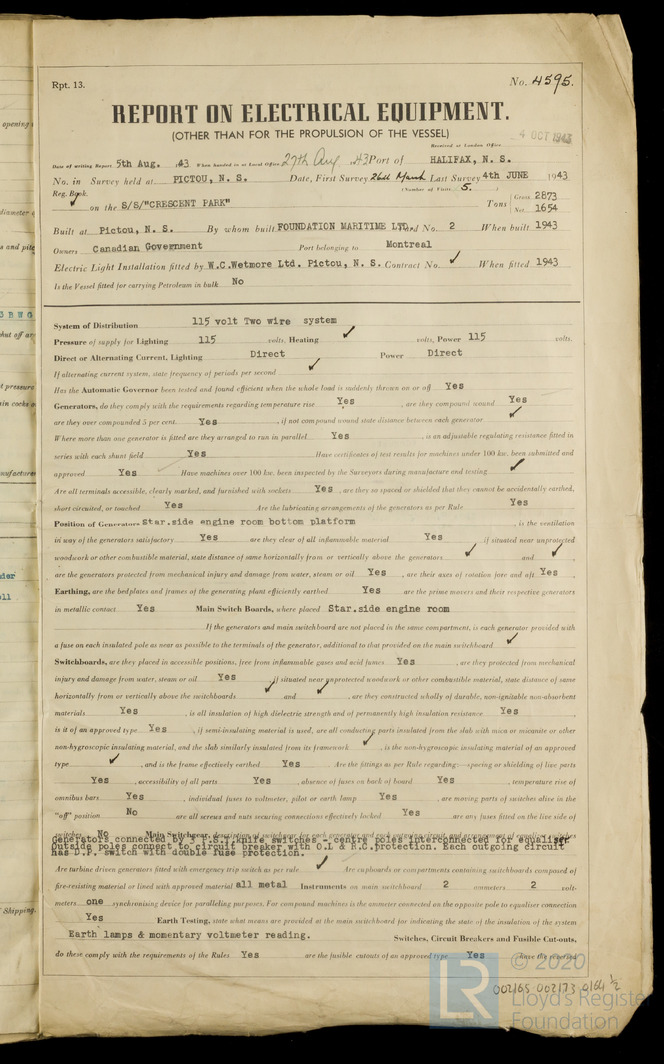 Rpt. 13.
No. 4595.
REPORT ON ELECTRICAL EQUIPMENT.
(OTHER THAN FOR THE PROPULSION OF THE VESSEL)
Received at London Office 4 OCT 1943
Date of writing Report 5th Aug. 43 When handed in at Local Office 27th Aug. 43 Port of HALIFAX, N. S.
No. in Survey held at PICTOU, N. S. Date, First Survey 26th March Last Survey 4th JUNE 1943
Reg. Book. (Number of Visits 5.)
on the S/S/"CRESCENT PARK" Tons Gross 2873
Net 1654
Built at Pictou, N. S. By whom built FOUNDATION MARITIME LTD. Yard No. 2 When built 1943
Owners Canadian Government Port belonging to Montreal
Electric Light Installation fitted by W.C.Wetmore Ltd. Pictou, N. S. Contract No. ✓ When fitted 1943
Is the Vessel fitted for carrying Petroleum in bulk No
System of Distribution 115 volt Two wire system
Pressure of supply for Lighting 115 volts, Heating ✓ volts, Power 115 volts.
Direct or Alternating Current, Lighting Direct Power Direct
If alternating current system, state frequency of periods per second ✓
Has the Automatic Governor been tested and found efficient when the whole load is suddenly thrown on or off Yes
Generators, do they comply with the requirements regarding temperature rise Yes, are they compound wound Yes
are they over compounded 5 per cent. Yes, if not compound wound state distance between each generator ✓
Where more than one generator is fitted are they arranged to run in parallel Yes, is an adjustable regulating resistance fitted in
series with each shunt field Yes Have certificates of test results for machines under 100 kw. been submitted and
approved Yes Have machines over 100 kw. been inspected by the Surveyors during manufacture and testing ✓
Are all terminals accessible, clearly marked, and furnished with sockets Yes, are they so spaced or shielded that they cannot be accidentally earthed,
short circuited, or touched Yes Are the lubricating arrangements of the generators as per Rule Yes
Position of Generators Star.side engine room bottom platform, is the ventilation
in way of the generators satisfactory Yes are they clear of all inflammable material Yes if situated near unprotected
woodwork or other combustible material, state distance of same horizontally from or vertically above the generators ✓ and ✓
are the generators protected from mechanical injury and damage from water, steam or oil Yes, are their axes of rotation fore and aft Yes
Earthing, are the bedplates and frames of the generating plant efficiently earthed Yes are the prime movers and their respective generators
in metallic contact Yes Main Switch Boards, where placed Star.side engine room
If the generators and main switchboard are not placed in the same compartment, is each generator provided with
a fuse on each insulated pole as near as possible to the terminals of the generator, additional to that provided on the main switchboard ✓
Switchboards, are they placed in accessible positions, free from inflammable gases and acid fumes Yes, are they protected from mechanical
injury and damage from water, steam or oil Yes if situated near unprotected woodwork or other combustible material, state distance of same
horizontally from or vertically above the switchboards ✓ and ✓, are they constructed wholly of durable, non-ignitable non-absorbent
materials Yes, is all insulation of high dielectric strength and of permanently high insulation resistance Yes,
is it of an approved type Yes, if semi-insulating material is used, are all conducting parts insulated from the slab with mica or micanite or other
non-hygroscopic insulating material, and the slab similarly insulated from its framework ✓, is the non-hygroscopic insulating material of an approved
type ✓, and is the frame effectively earthed Yes Are the fittings as per Rule regarding:—spacing or shielding of live parts
Yes, accessibility of all parts Yes, absence of fuses on back of board Yes, temperature rise of
omnibus bars Yes, individual fuses to voltmeter, pilot or earth lamp Yes, are moving parts of switches alive in the
"off" position No are all screws and nuts securing connections effectively locked Yes are any fuses fitted on the live side of
switches No Main Switchgear, description of switchgear for each generator and each outgoing circuit, and arrangement of equaliser switches
Generators connected by 3 P.S.T. knife switches - centre poles interconnected for equaliser
Outside poles connect to circuit breaker with O.L & R.C.protection. Each outgoing circuit
has D.P. switch with double fuse protection.
Are turbine driven generators fitted with emergency trip switch as per rule ✓ Are cupboards or compartments containing switchboards composed of
fire-resisting material or lined with approved material all metal Instruments on main switchboard 2 ammeters 2 volt-
meters one synchronising device for paralleling purposes. For compound machines is the ammeter connected on the opposite pole to equaliser connection
Yes Earth Testing, state what means are provided at the main switchboard for indicating the state of the insulation of the system
Earth lamps & momentary voltmeter reading. Switches, Circuit Breakers and Fusible Cut-outs,
do these comply with the requirements of the Rules Yes are the fusible cutouts of an approved type Yes have the reversed
LR © 2020
Lloyd's Register
Foundation
002165 002173 0164 ½
opening
diameter
and pit
3 B W G
hut off
t pressure
in cocks
nufacturer
der
ll
Shipping.